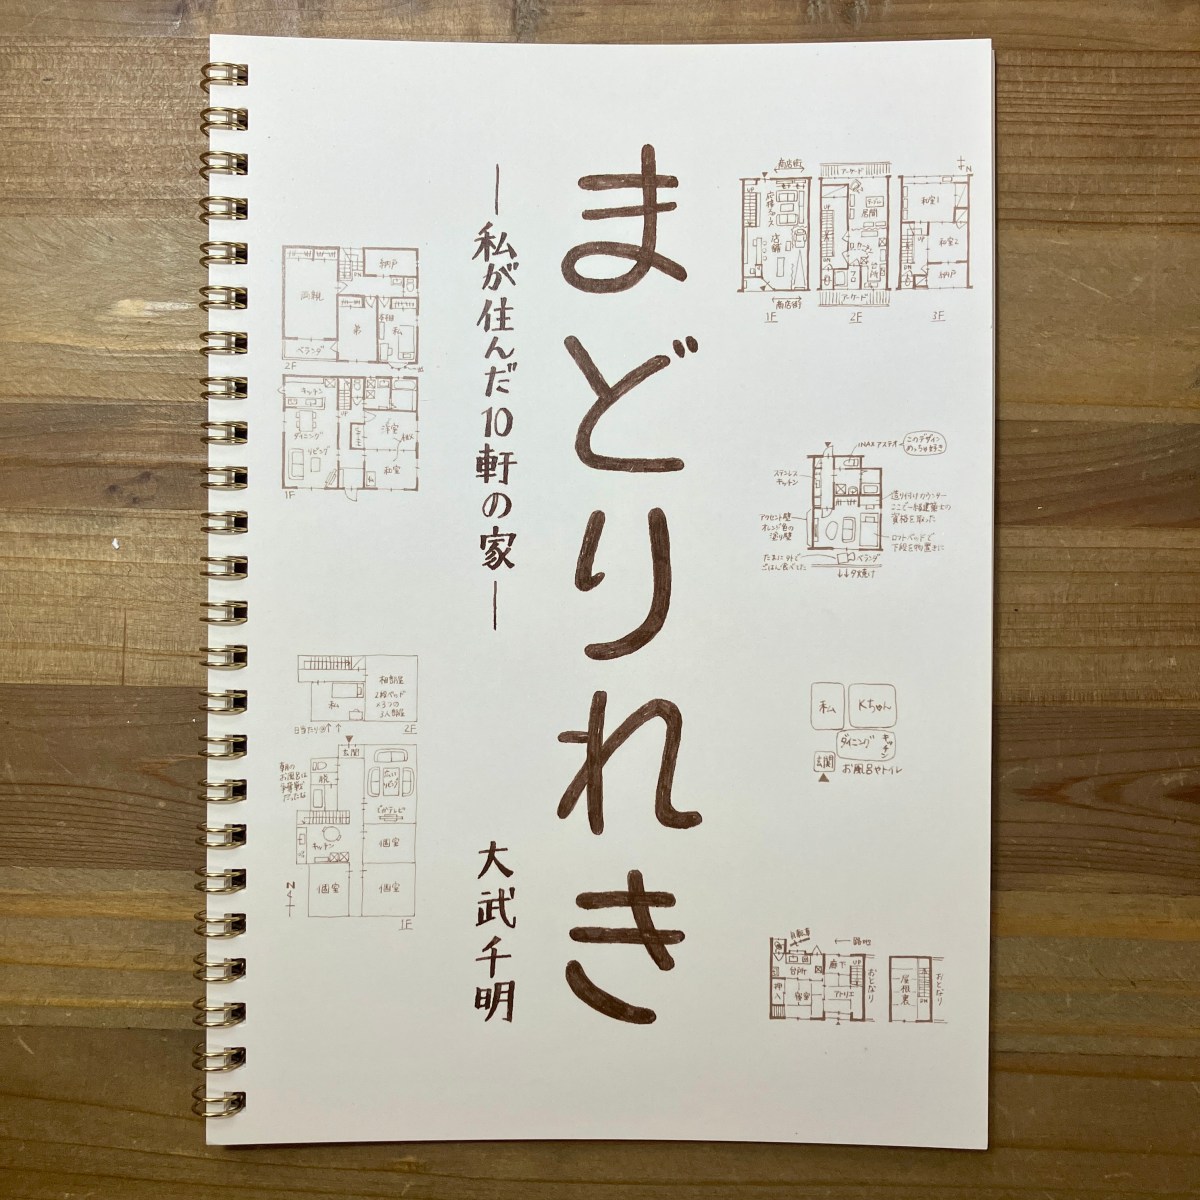 まどりれき
―私が住んだ10軒の家―
大武千明
商店街
応接スペース
店舗
UP
商店街
1F
アーケード
居間
UP
DN
アーケード
2F
N
和室1
和室2
納戸
DN
3F
納戸
両親
弟
私
ベランダ
2F
キッチン
ダイニング
リビング
UP
洋室
和室
1F
INAXアステオ
このデザイン
めっちゃ好き
ステンレス
キッチン
造り付けカウンター
ここで一級建築士の
資格を取った
アクセント壁
オレンジ色の
塗り壁
ロフトベッドで
下段を物置きに
たまに外で
ごはん食べた
ベランダ
↓↓夕焼け
相部屋
2段ベッド
×3つの
3人部屋
私
2F
玄関
朝の
お風呂は
争奪戦
だったな
広い
リビング
でかテレビ
キッチン
個室
個室
個室
N
1F
私
Kちゃん
ダイニング
キッチン
玄関
お風呂やトイレ
自転車
←路地
台所
廊下
UP
押入
寝室
アトリエ
おとなり
屋根裏
DN
おとなり